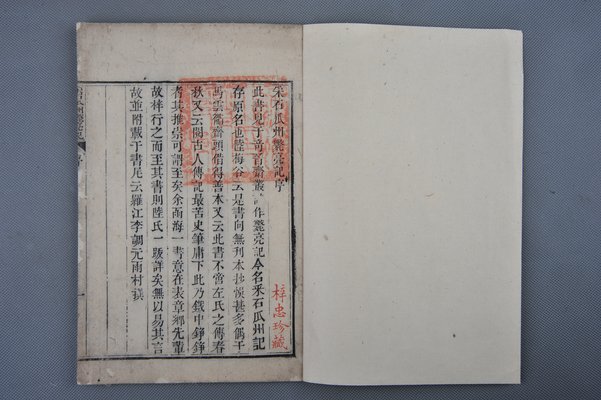 采石瓜州斃亮記序
此書見于奇晉齋叢書作斃亮記今名采石瓜州記
存原名也陸梅谷云是書向無刊本抄悞甚多偶于
馬雲衢齋頭借得善本又云此書不啻左氏之傳春
秋又云閱古人傳記最苦史筆庸下此乃鐵中錚錚
者其推崇可謂至矣余函海一書意在表章鄉先輩
故梓行之而至其書則陸氏一跋詳矣無以易其言
故並附載于書尾云羅江李調元雨村譔
梓忠珍藏